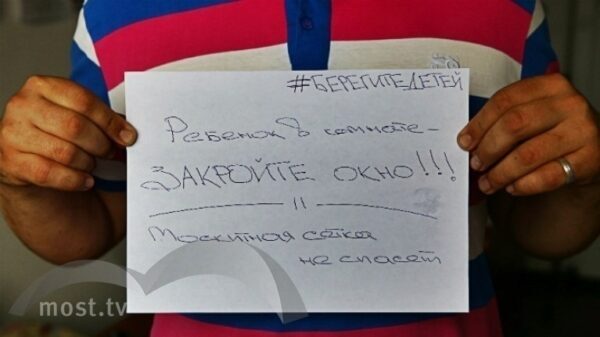 #БЕРЕГИТЕДЕТЕЙ
Ребенок в комнате -
ЗАКРОЙТЕ ОКНО!!!
Москитная сетка
не спасет
most.tv